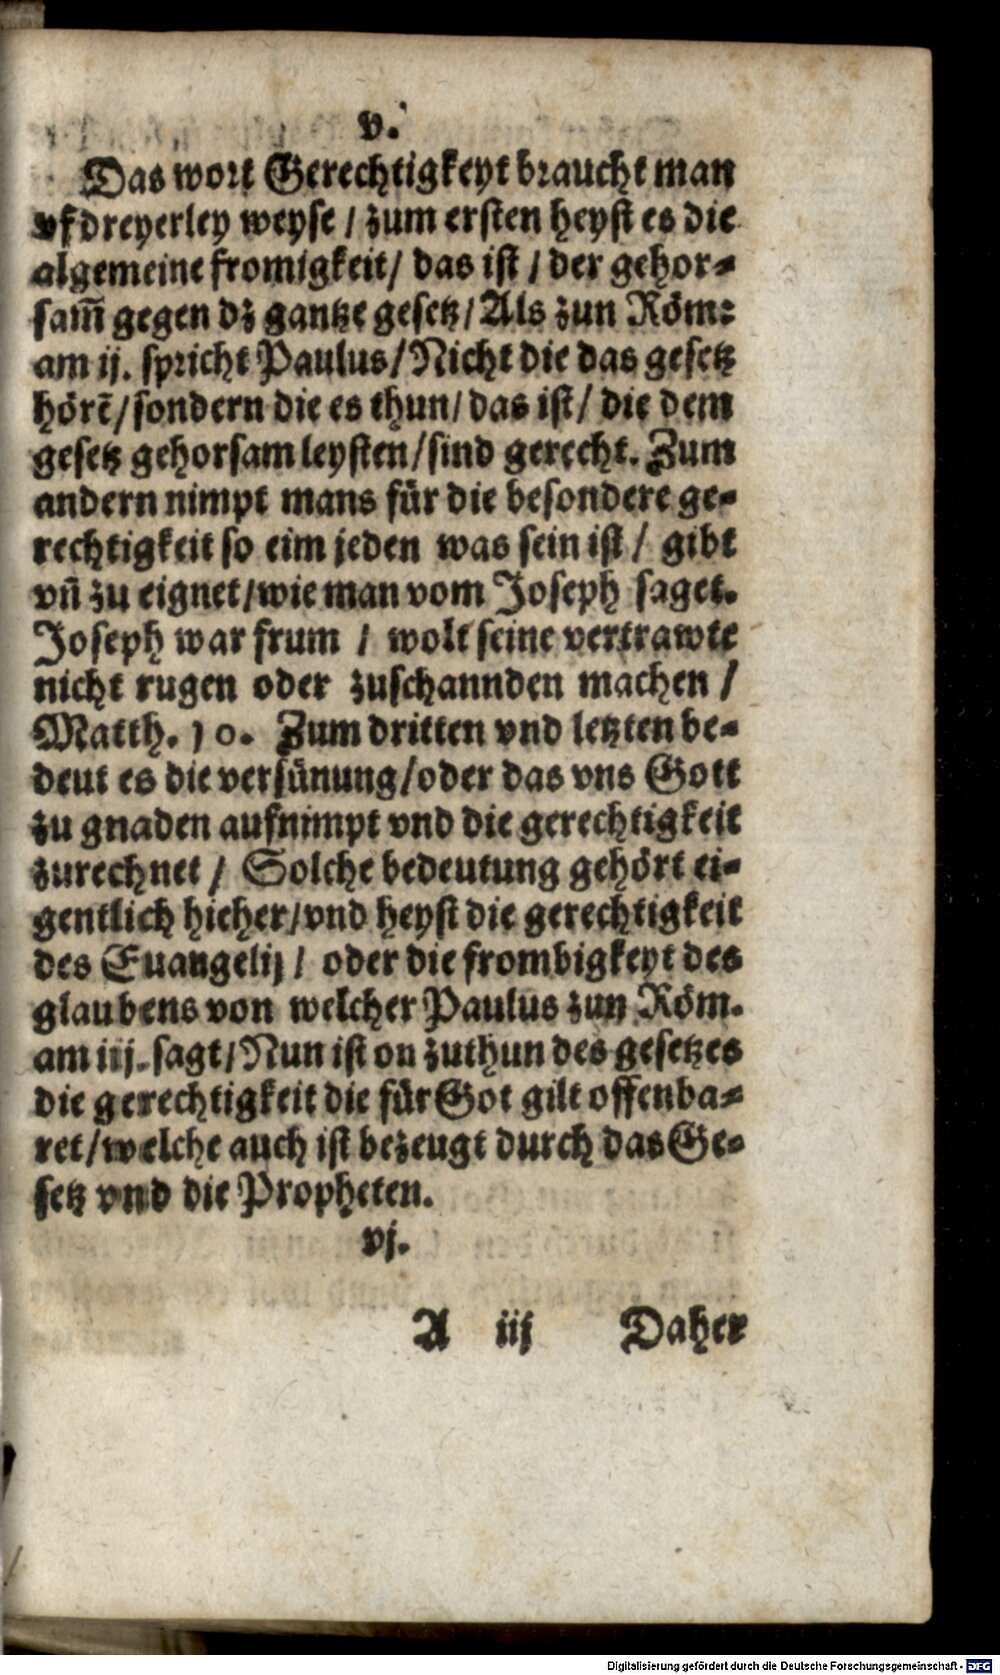 v.
Das wort Gerechtigkeyt braucht man
vf dreyerley weyse / zum ersten heyst es die
algemeine fromigkeit / das ist / der gehor-
sam̃ gegen dz gantze gesetz / Als zun Röm:
am ij. spricht Paulus / Nicht die das gesetz
hörẽ / sondern die es thun / das ist / die dem
gesetz gehorsam leysten / sind gerecht. Zum
andern nimpt mans für die besondere ge-
rechtigkeit so eim jeden was sein ist / gibt
vñ zu eignet / wie man vom Joseph saget.
Joseph war frum / wolt seine vertrawte
nicht rugen oder zuschannden machen /
Matth. 10. Zum dritten vnd letzten be-
deut es die versünung / oder das vns Gott
zu gnaden aufnimpt vnd die gerechtigkeit
zurechnet / Solche bedeutung gehört ei-
gentlich hieher / vnd heyst die gerechtigkeit
des Euangelij / oder die frombigkeyt des
glaubens von welcher Paulus zun Röm.
am iij. sagt / Nun ist on zuthun des gesetzes
die gerechtigkeit die für Got gilt offenba-
ret / welche auch ist bezeugt durch das Ge-
setz vnd die Propheten.
vj.
A iij Daher
Digitalisierung gefördert durch die Deutsche Forschungsgemeinschaft - DFG